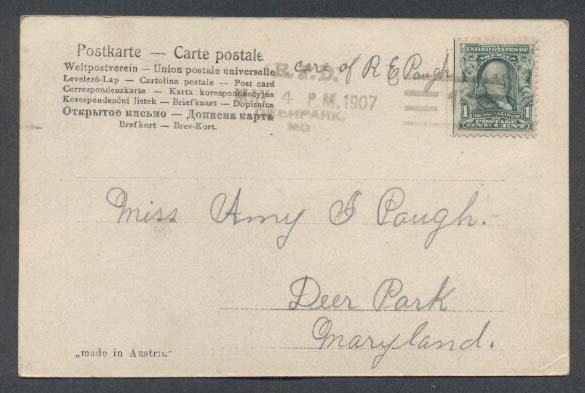 Postkarte — Carte postale
Weltpostverein — Union postale universelle
Levelező-Lap — Cartolina postale — Post card
Correspondenzkarte — Karta korespondencyjna
Korespondenční listek — Briefkaart — Dopisnica
Открытое письмо — Дописна карта
Brefkort — Brev-Kort.
care of R E Paugh
R. F. D.
4 P.M. 1907
DEERPARK,
MD
UNITED STATES OF
AMERICA
POSTAGE
1 ONE CENT 1
Miss Amy J Paugh.
Deer Park
Maryland.
„made in Austria"